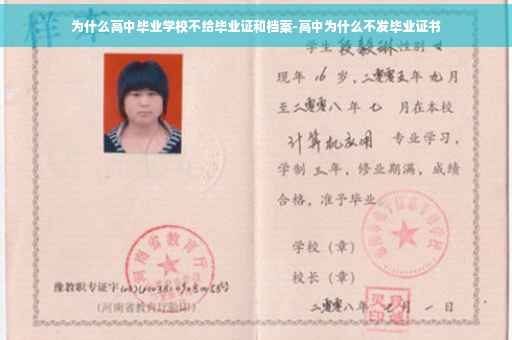 为什么高中毕业学校不给毕业证和档案-高中为什么不发毕业证书
样本
学生 段毅琳 性别 女
现年 16 岁，二零零五年 九月
至二零零八年 七 月在本校
计算机应用 专业学习，
学制 三 年，修业期满，成绩
合格，准予毕业
学校（章）
校长（章）
二零零八年 七 月 一 日
河南省教育厅
豫教职专证字
（河南省教育厅验印）